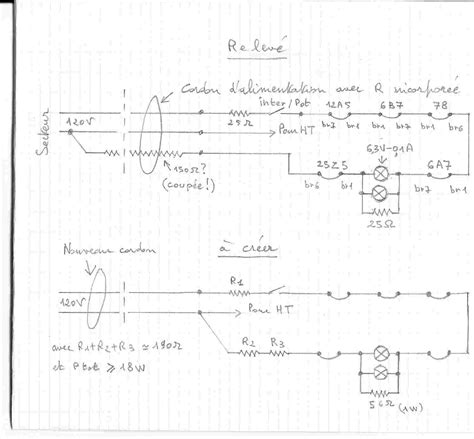 Relevé
Cordon d'alimentation avec R incorporée
Secteur
120V
25Ω
inter/Pot
12A5
6B7
78
br1
br7
br6
Pour HT
150Ω?
(coupée!)
25Z5
6,3V-0,1A
6A7
br6
br1
br7
br1
25Ω
Nouveau cordon
à créer
120V
R1
Pour HT
R2
R3
avec R1+R2+R3 ≃ 190Ω
et Ptot ≥ 18W
56Ω (1W)